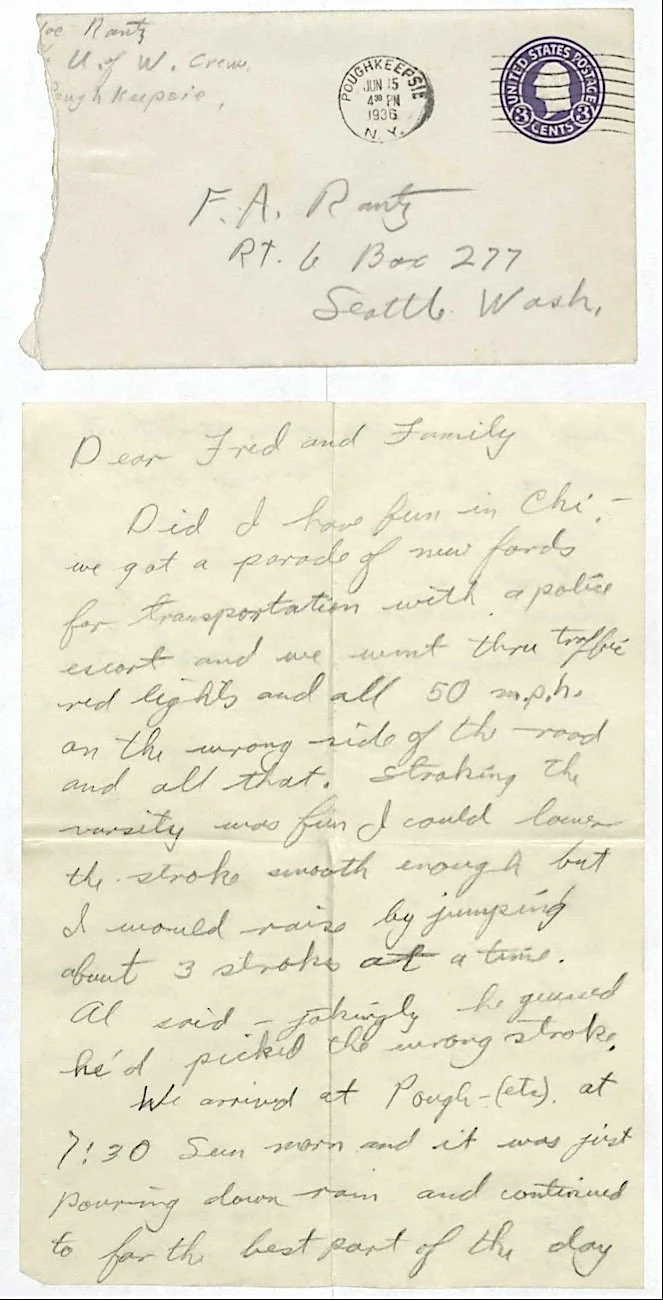 Joe Rantz
U. of W. Crew.
Poughkeepsie,
POUGHKEEPSIE
JUN 15
4 30 PM
1936
N. Y.
UNITED STATES POSTAGE
3 CENTS 3
F. A. Rantz
Rt. 6 Box 277
Seattle Wash.
Dear Fred and Family
Did I have fun in Chi. -
we got a parade of new fords
for transportation with a police
escort and we went thru traffic
red lights and all 50 m.p.h.
on the wrong side of the road
and all that. Stroking the
varsity was fun I could lower
the stroke smooth enough but
I would raise by jumping
about 3 stroks at a time.
Al said - jokingly he guessed
he'd picked the wrong stroke.
We arrived at Pough-(etc). at
7:30 Sun morn and it was just
pouring down rain and continued
to for the best part of the day